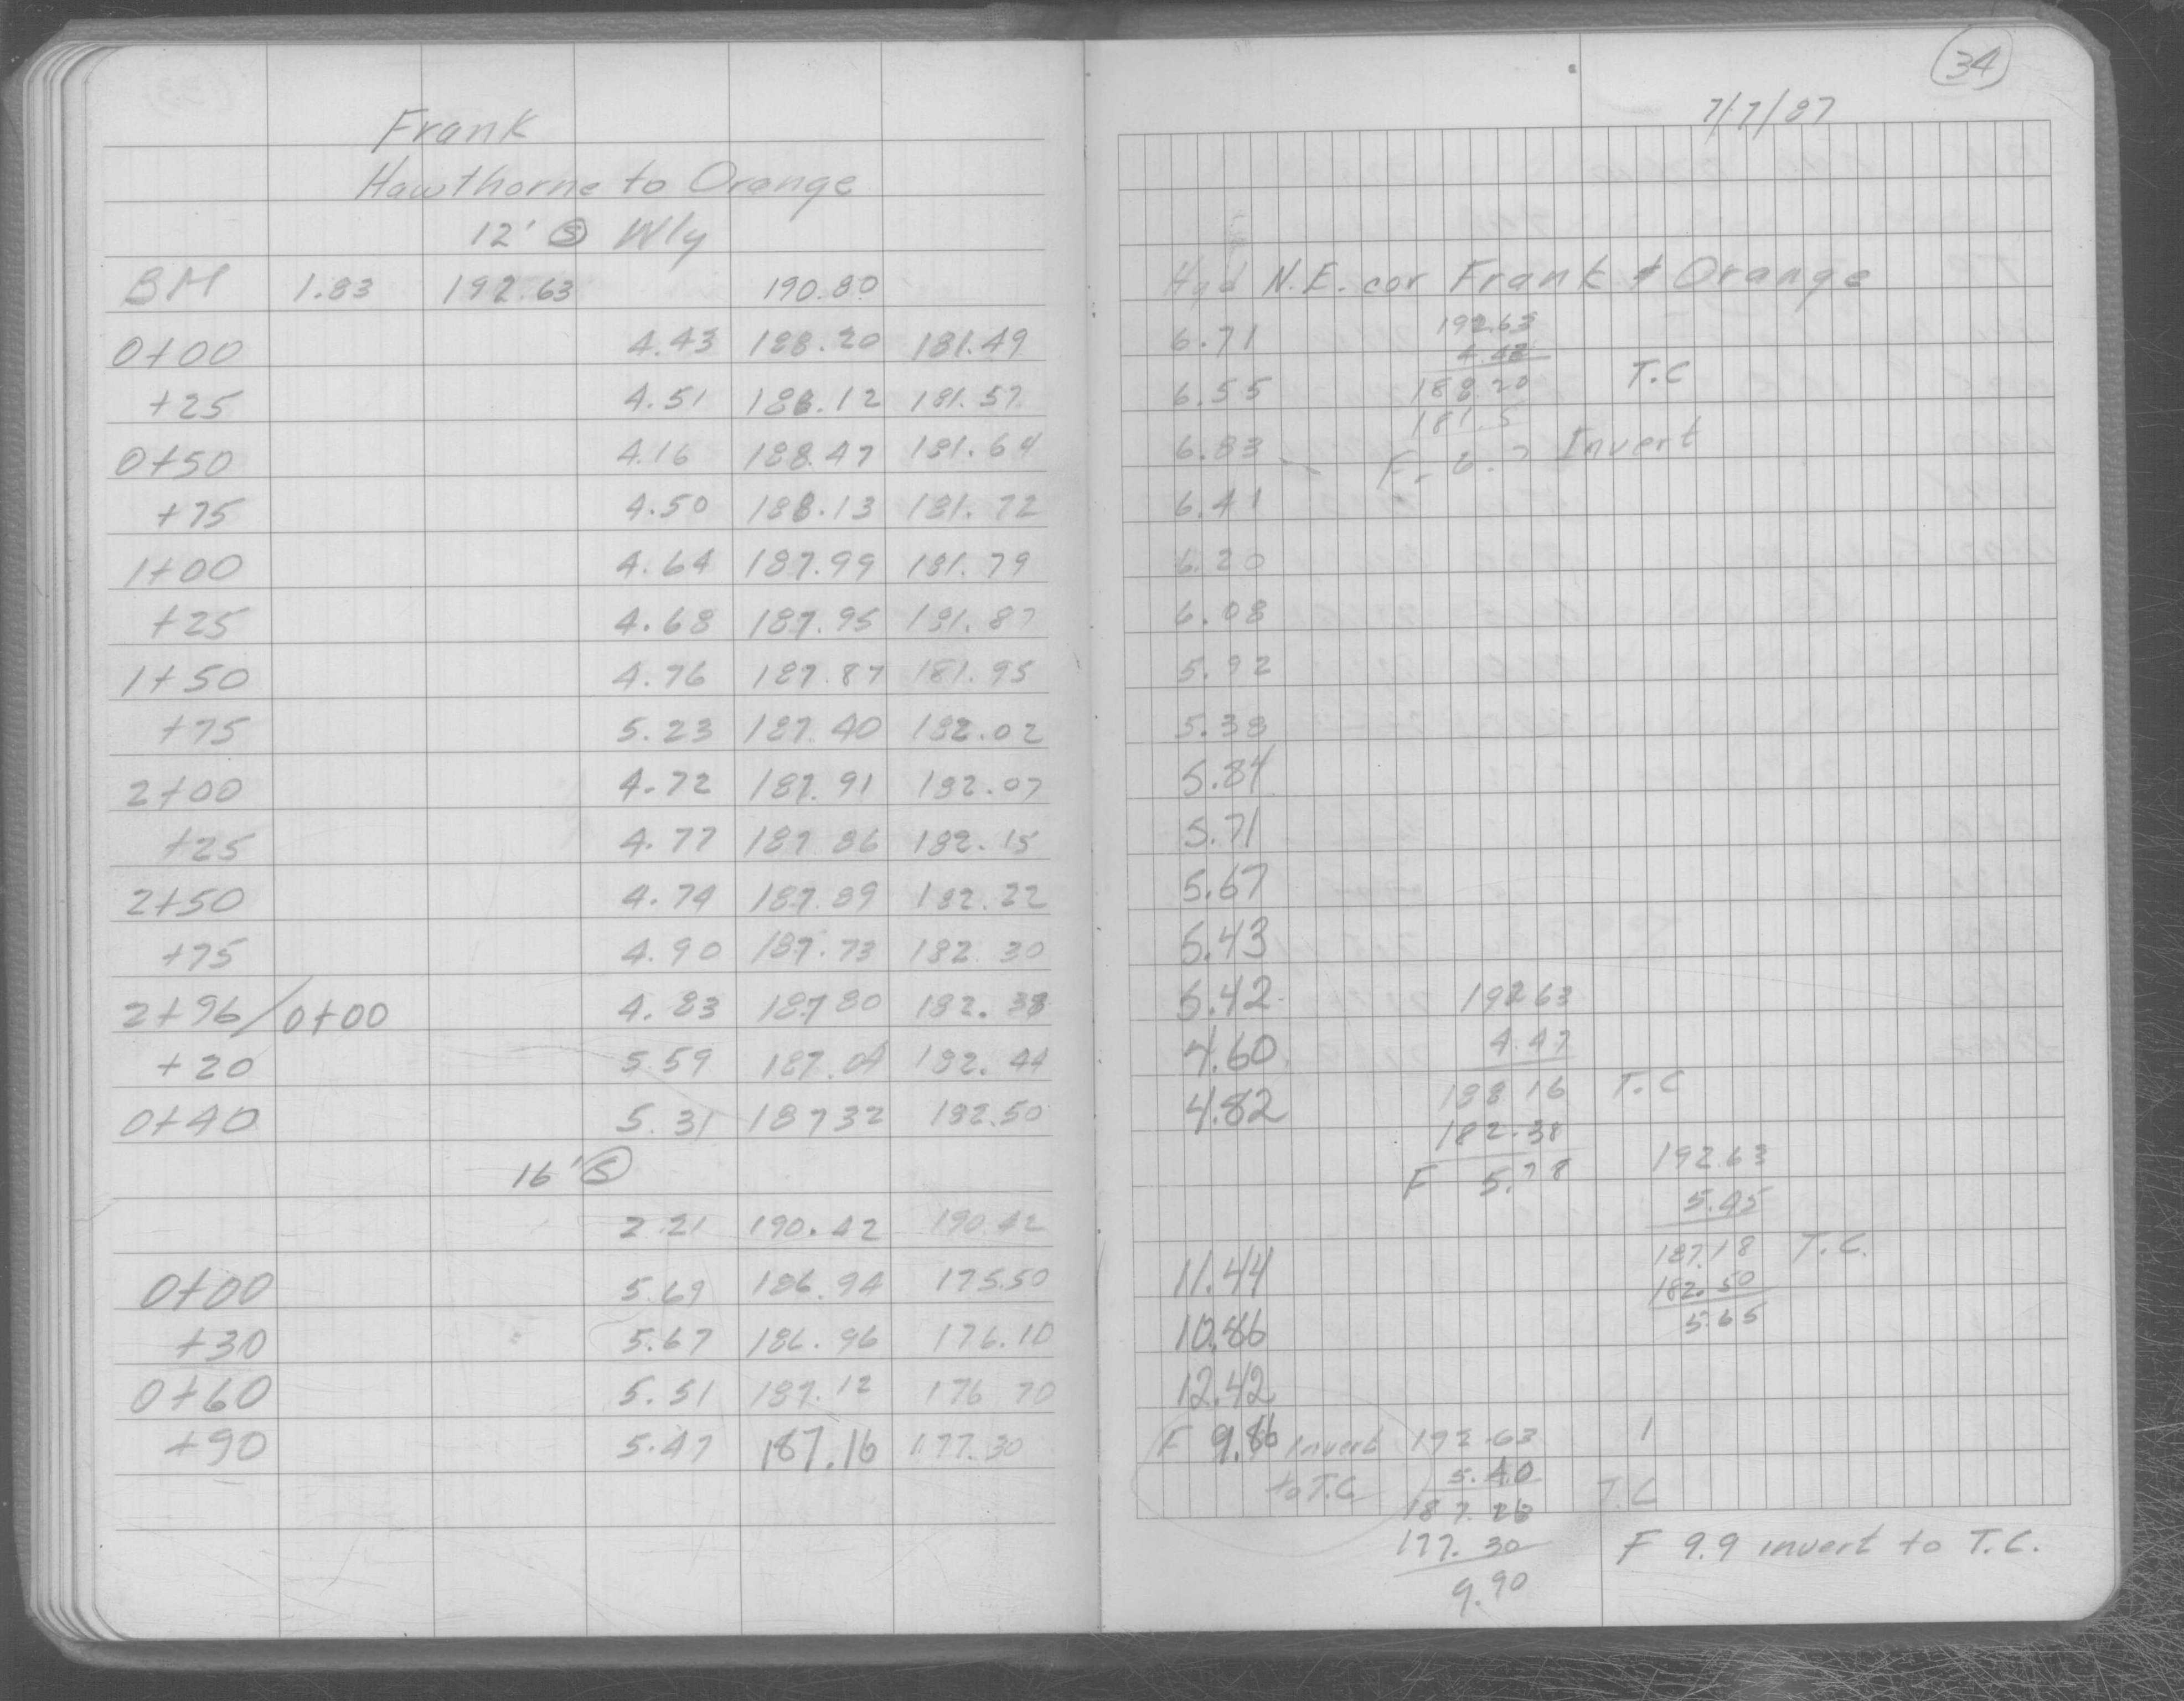 Frank
Hawthorne to Orange
12' Ⓢ Wly
BM 1.83 192.63 190.80
0+00 4.43 188.20 181.49
+25 4.51 188.12 181.57
0+50 4.16 188.47 181.64
+75 4.50 188.13 181.72
1+00 4.64 187.99 181.79
+25 4.68 187.95 181.87
1+50 4.76 187.87 181.95
+75 5.23 187.40 182.02
2+00 4.72 187.91 182.07
+25 4.77 187.86 182.15
2+50 4.74 187.89 182.22
+75 4.90 187.73 182.30
2+96/0+00 4.83 187.80 182.38
+20 5.59 187.04 182.44
0+40 5.31 187.32 182.50
16' Ⓢ
2.21 190.42 190.42
0+00 5.69 186.94 175.50
+30 5.67 186.96 176.10
0+60 5.51 187.12 176.70
+90 5.47 187.16 177.30
34
7/7/87
Hyd N.E. cor Frank & Orange
6.71 192.63
4.43
6.55 188.20 T.C
181.5
6.83 — F- 6.7 Invert
6.41
6.20
6.08
5.92
5.38
5.84
5.71
5.67
5.43
5.42 192.63
4.60 4.47
4.82 188.16 T.C
182.38
F 5.78
192.63
5.45
187.18 T.C.
182.50
5.65
11.44
10.86
12.42
F 9.86 Invert to T.C
192.63
5.40
187.23 T.C
177.30
9.90
F 9.9 invert to T.C.